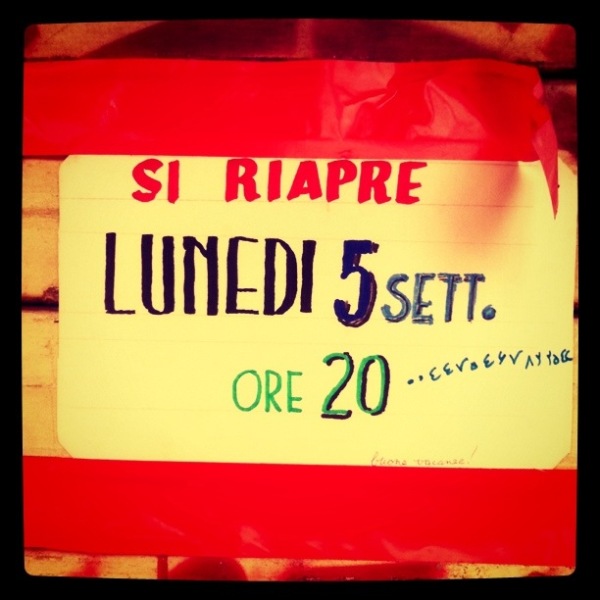 SI RIAPRE
LUNEDI 5 SETT.
ORE 20
buone vacanze!